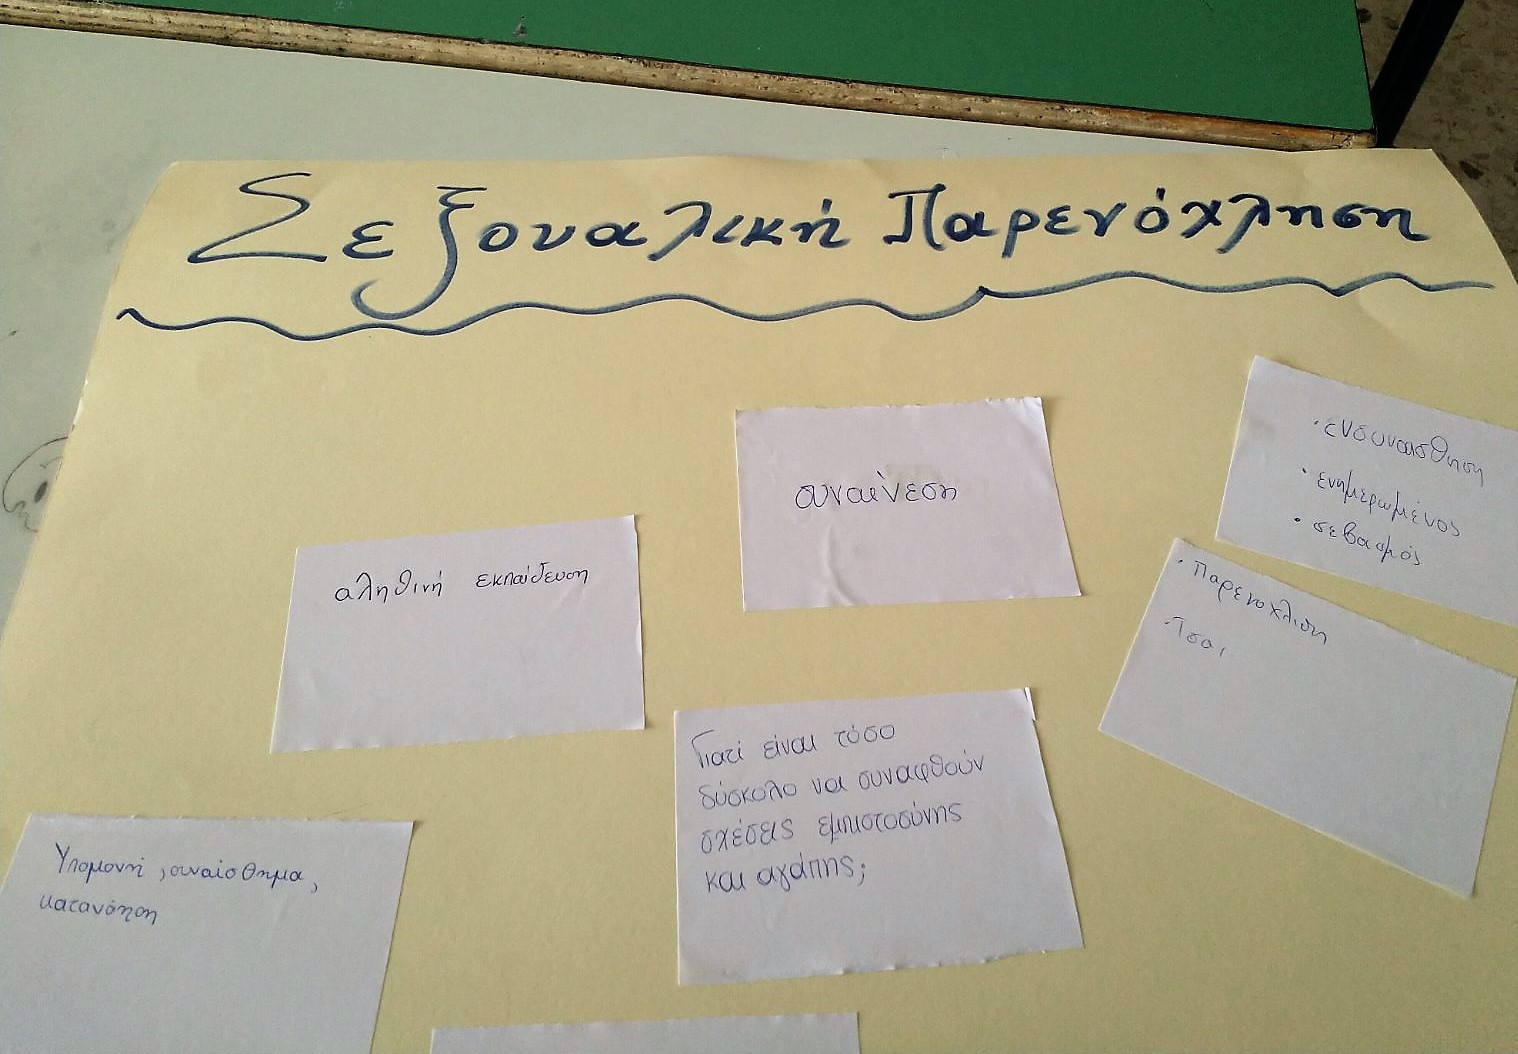 Σεξουαλική Παρενόχληση
συναίνεση
· ενσυναισθηση
· ενημερωμένος
· σεβασμός
αληθινή εκπαίδευση
· Παρενοχλιση
Γιατί είναι τόσο
δύσκολο να συναφθούν
σχέσεις εμπιστοσύνης
και αγάπης;
Υπομονή, συναίσθημα,
κατανόηση